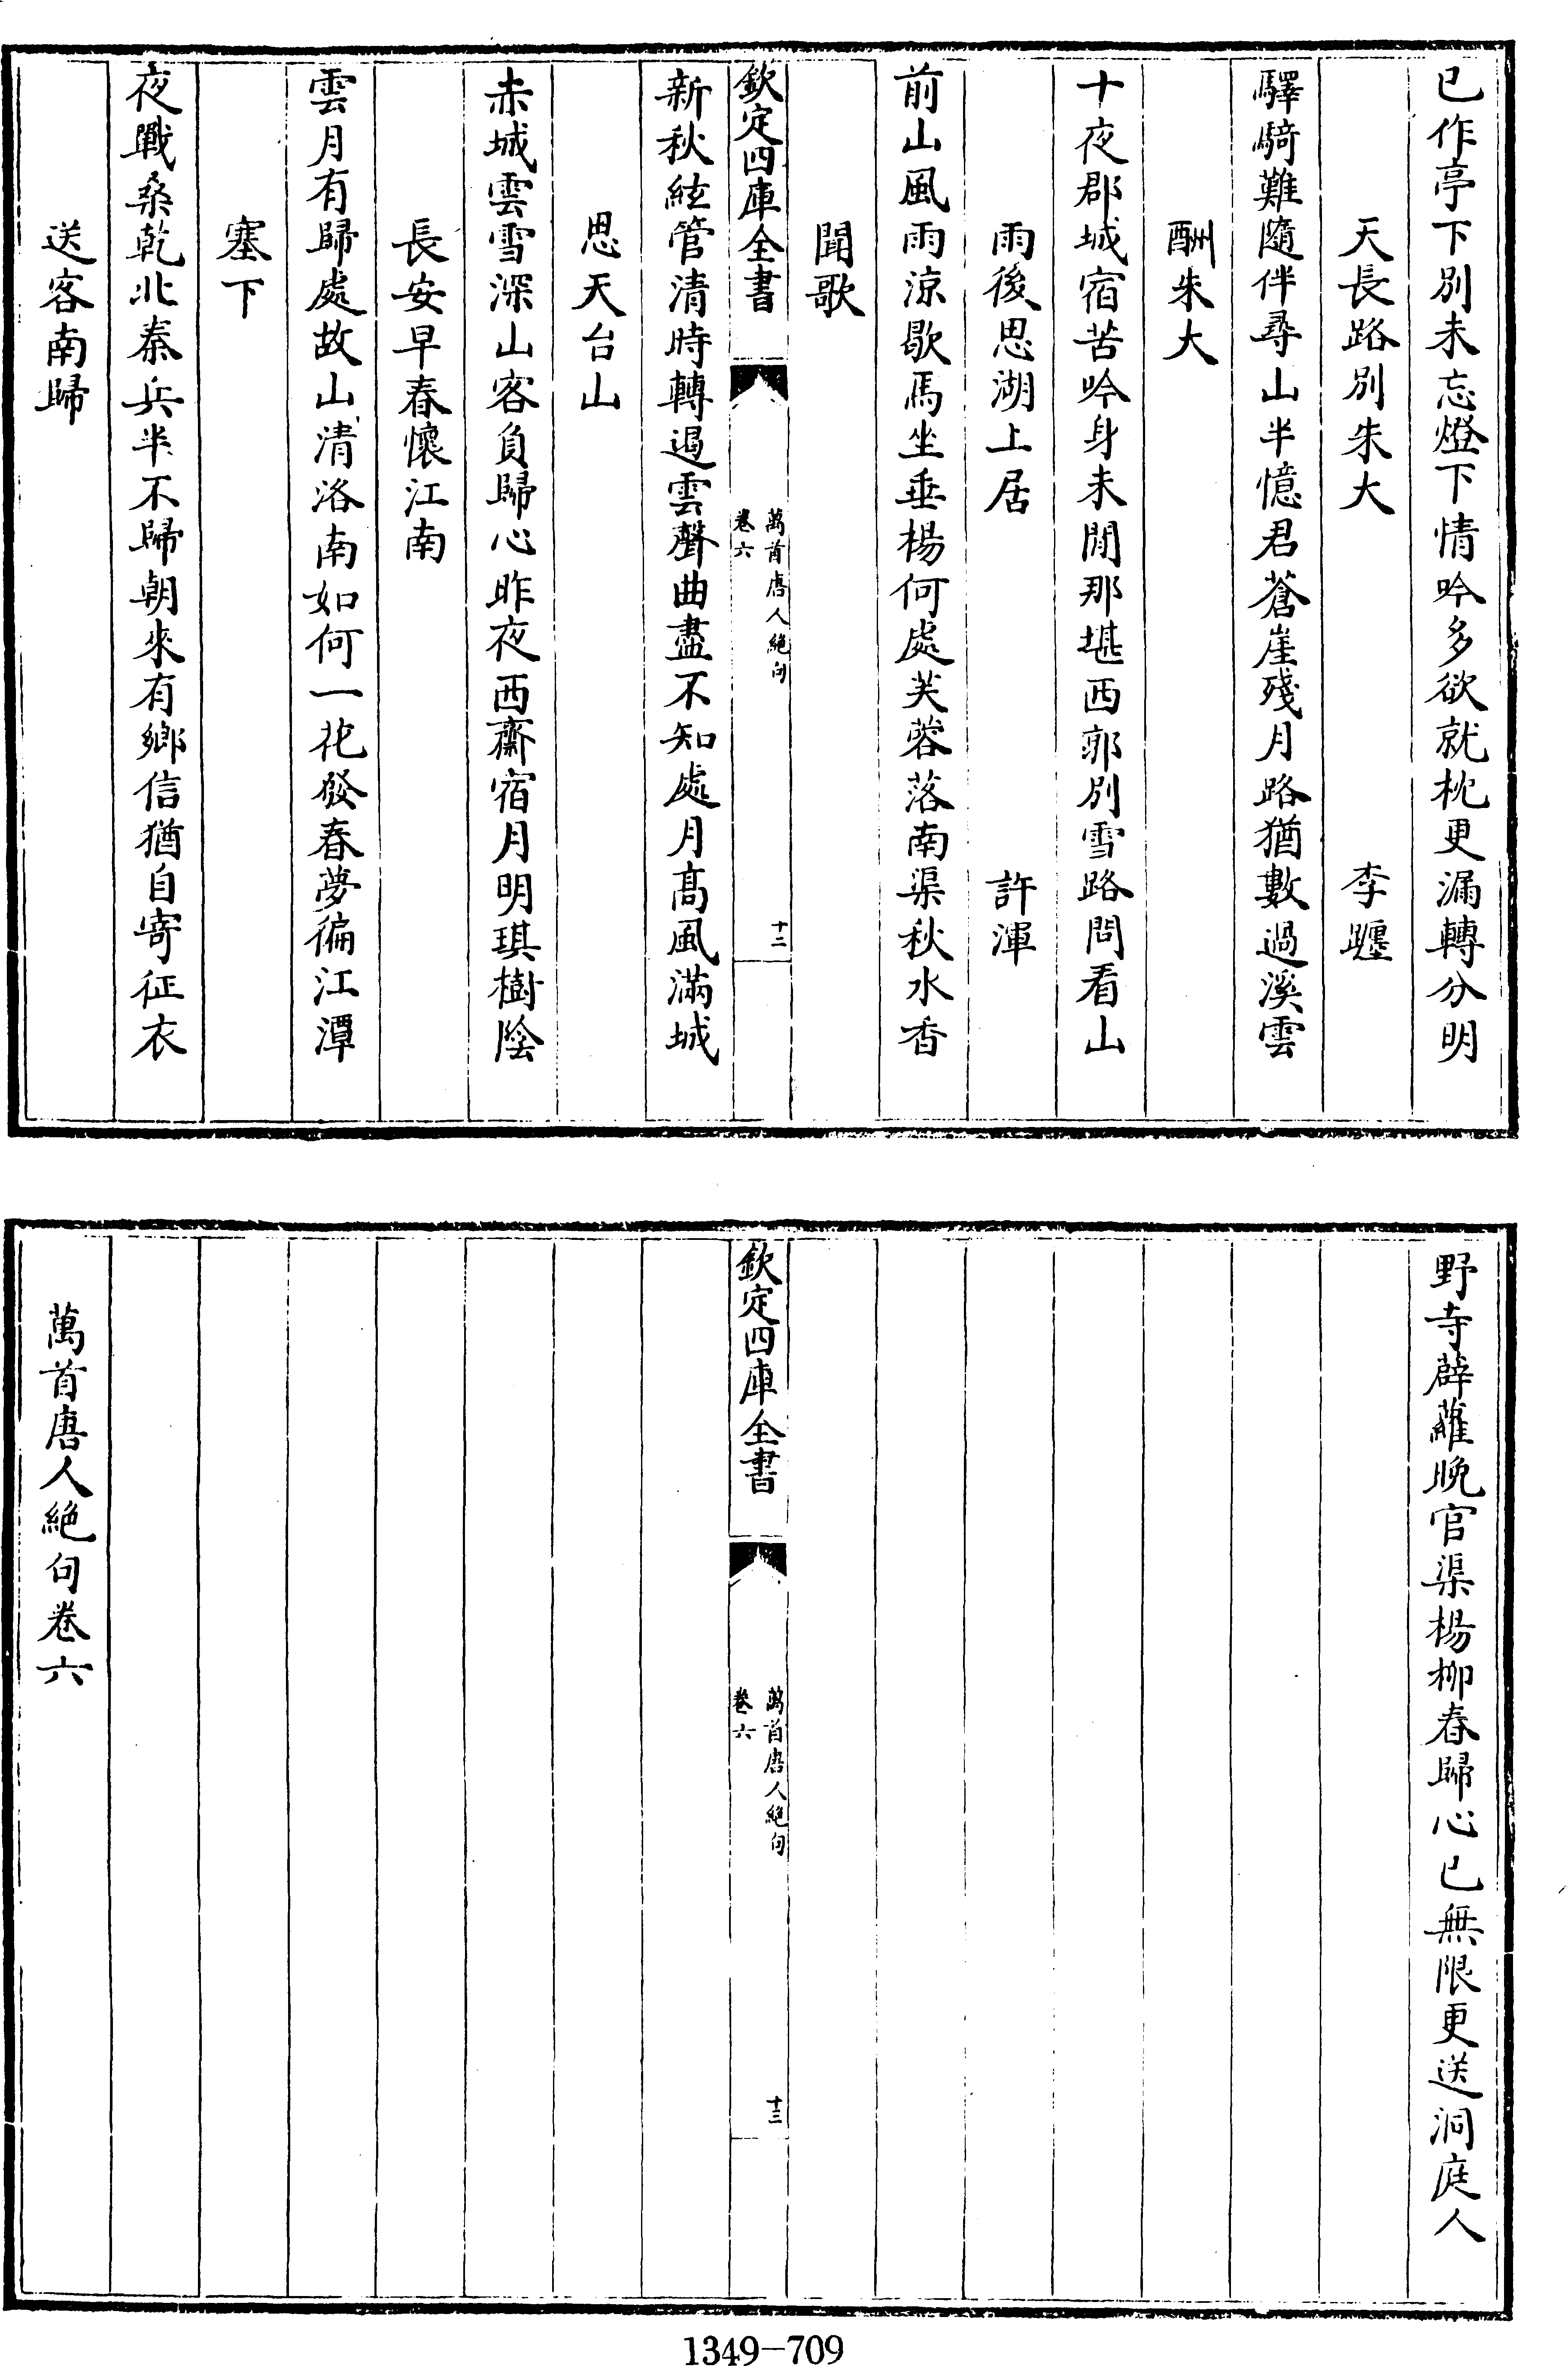 已作亭下别未忘燈下情吟多欲就枕更漏轉分明
天長路别朱大 李廓
驛騎難隨伴尋山半憶君蒼崖殘月路猶數過溪雲
酬朱大
十夜郡城宿苦吟身未閒那堪西郭别雪路問看山
雨後思湖上居 許渾
前山風雨涼歇馬坐垂楊何處芙蓉落南渠秋水香
聞歌
欽定四庫全書
萬首唐人絶句
卷六
十二
新秋絃管清時轉遏雲聲曲盡不知處月髙風滿城
思天台山
赤城雲雪深山客負歸心昨夜西齋宿月明琪樹陰
長安早春懷江南
雲月有歸處故山清洛南如何一花發春夢徧江潭
塞下
夜戰桑乾北秦兵半不歸朝來有鄉信猶自寄征衣
送客南歸
野寺薜蘿晚官渠楊柳春歸心已無限更送洞庭人
欽定四庫全書
萬首唐人絶句
卷六
十三
萬首唐人絶句卷六
1349-709